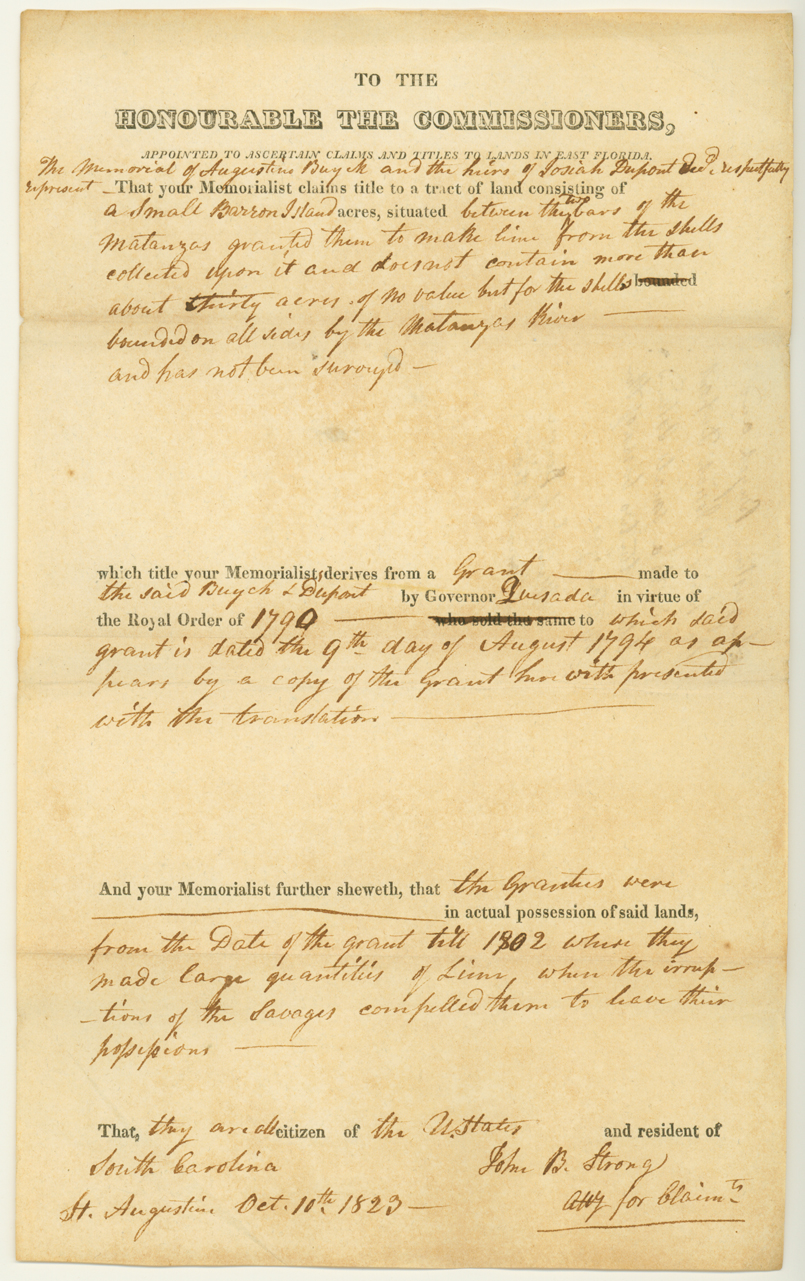 TO THE
HONOURABLE THE COMMISSIONERS,
APPOINTED TO ASCERTAIN CLAIMS AND TITLES TO LANDS IN EAST FLORIDA.
The Memorial of Augustine Buyck and the heirs of Josiah Dupont Decd. respectfully
represent — That your Memorialist claims title to a tract of land consisting of
a Small Barron Island acres, situated between the two bars of the
Matanzas granted them to make lime from the shells
collected upon it and does not contain more than
about thirty acres of no value but for the shells bounded
bounded on all sides by the Matanzas River —
and has not been surveyed —
which title your Memorialists derives from a Grant — made to
the said Buyck & Dupont by Governor Quesada in virtue of
the Royal Order of 1790 — who sold the same to which said
grant is dated the 9th day of August 1794 as ap-
pears by a copy of the Grant here with presented
with the translation —
And your Memorialist further sheweth, that the Grantees were
— in actual possession of said lands,
from the Date of the grant till 1802 where they
made large quantities of Lime, when the irrup-
-tions of the Savages compelled them to leave their
possessions —
That, they are all citizen of the U. States and resident of
South Carolina John B. Strong
St. Augustine Oct. 10th 1823 — Atty for Claimts